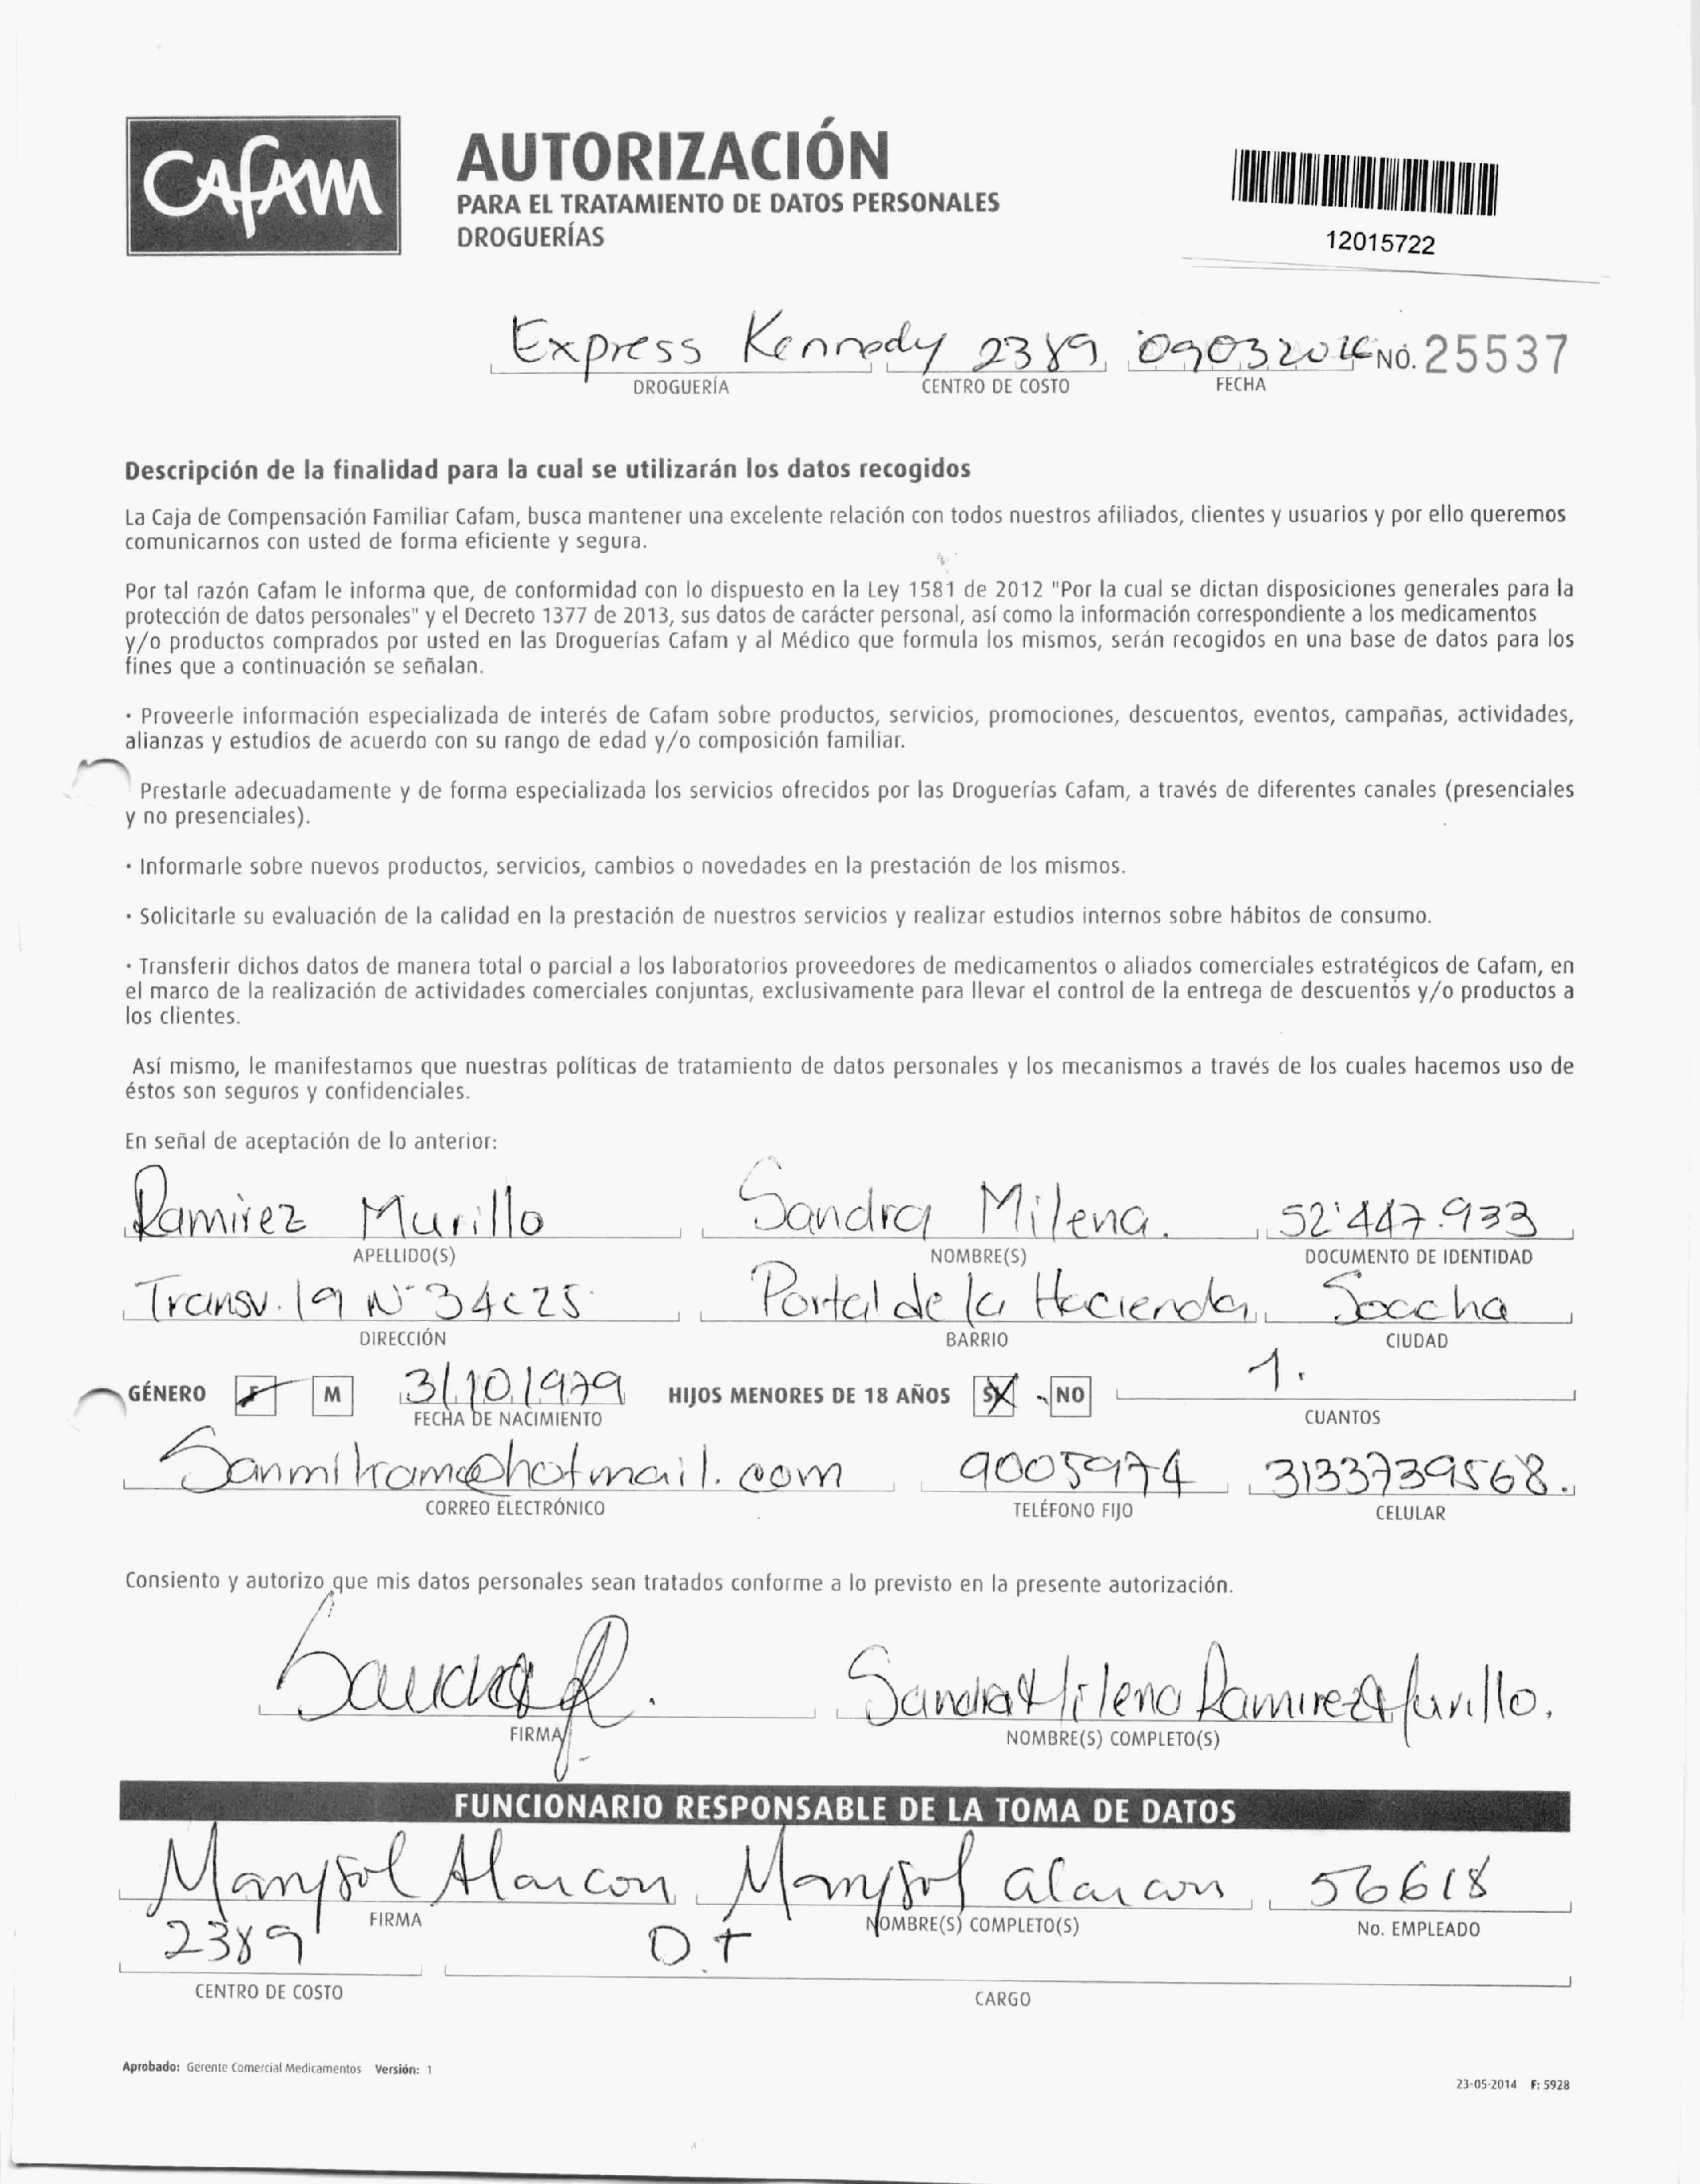 CAFAM
AUTORIZACIÓN
PARA EL TRATAMIENTO DE DATOS PERSONALES
DROGUERÍAS
12015722
Express Kennedy 2389 09032016 NO. 25537
DROGUERÍA CENTRO DE COSTO FECHA
Descripción de la finalidad para la cual se utilizarán los datos recogidos
La Caja de Compensación Familiar Cafam, busca mantener una excelente relación con todos nuestros afiliados, clientes y usuarios y por ello queremos
comunicarnos con usted de forma eficiente y segura.
Por tal razón Cafam le informa que, de conformidad con lo dispuesto en la Ley 1581 de 2012 "Por la cual se dictan disposiciones generales para la
protección de datos personales" y el Decreto 1377 de 2013, sus datos de carácter personal, así como la información correspondiente a los medicamentos
y/o productos comprados por usted en las Droguerías Cafam y al Médico que formula los mismos, serán recogidos en una base de datos para los
fines que a continuación se señalan.
· Proveerle información especializada de interés de Cafam sobre productos, servicios, promociones, descuentos, eventos, campañas, actividades,
alianzas y estudios de acuerdo con su rango de edad y/o composición familiar.
Prestarle adecuadamente y de forma especializada los servicios ofrecidos por las Droguerías Cafam, a través de diferentes canales (presenciales
y no presenciales).
· Informarle sobre nuevos productos, servicios, cambios o novedades en la prestación de los mismos.
· Solicitarle su evaluación de la calidad en la prestación de nuestros servicios y realizar estudios internos sobre hábitos de consumo.
· Transferir dichos datos de manera total o parcial a los laboratorios proveedores de medicamentos o aliados comerciales estratégicos de Cafam, en
el marco de la realización de actividades comerciales conjuntas, exclusivamente para llevar el control de la entrega de descuentos y/o productos a
los clientes.
Así mismo, le manifestamos que nuestras políticas de tratamiento de datos personales y los mecanismos a través de los cuales hacemos uso de
éstos son seguros y confidenciales.
En señal de aceptación de lo anterior:
Ramirez Murillo Sandra Milena. 52'447.933
APELLIDO(S) NOMBRE(S) DOCUMENTO DE IDENTIDAD
Transv. 19 N° 34c25 Portal de la Hacienda Soacha
DIRECCIÓN BARRIO CIUDAD
GÉNERO F M 31101979 HIJOS MENORES DE 18 AÑOS SI NO 1.
FECHA DE NACIMIENTO CUANTOS
Sanmilram@hotmail.com 9005974 3133739568.
CORREO ELECTRÓNICO TELÉFONO FIJO CELULAR
Consiento y autorizo que mis datos personales sean tratados conforme a lo previsto en la presente autorización.
Sandra R. Sandra Milena Ramirez Murillo.
FIRMA NOMBRE(S) COMPLETO(S)
FUNCIONARIO RESPONSABLE DE LA TOMA DE DATOS
Marysol Alarcon Marysol alarcon 56618
FIRMA NOMBRE(S) COMPLETO(S) No. EMPLEADO
2389 D.T
CENTRO DE COSTO CARGO
Aprobado: Gerente Comercial Medicamentos Versión: 1
23-05-2014 F: 5928